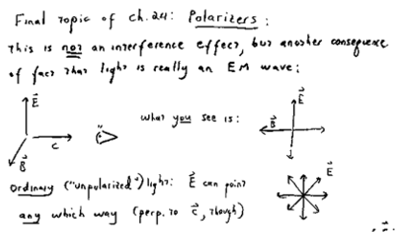 Final topic of ch.24: Polarizers:
This is not an interference effect, but another consequence
of fact that light is really an EM wave:
E
What you see is:
E
B
C
B
Ordinary ("unpolarized") light: E can point
E
any which way (perp. to c, though)